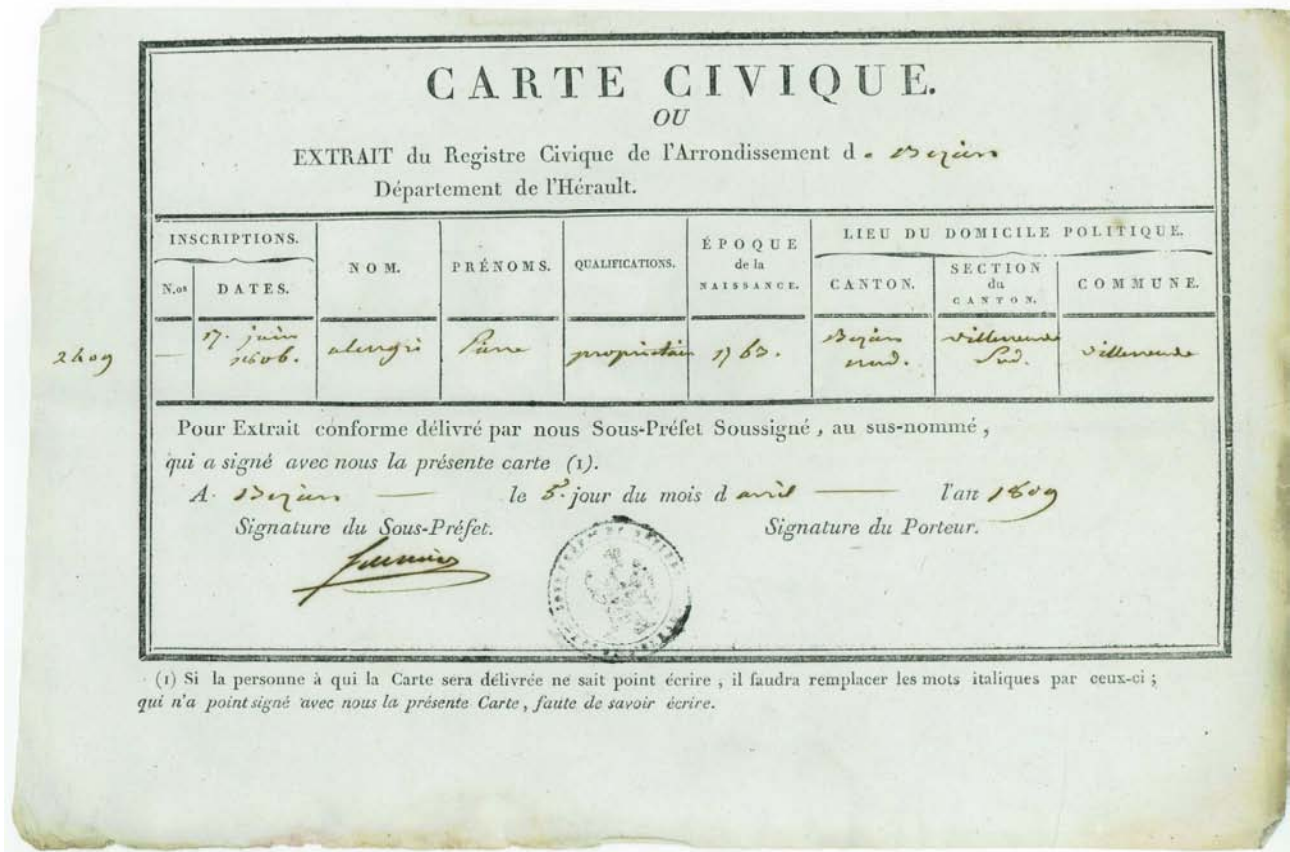 CARTE CIVIQUE.
OU
EXTRAIT du Registre Civique de l'Arrondissement d e Beziers
Département de l'Hérault.
INSCRIPTIONS.
N.os
DATES.
NOM.
PRÉNOMS.
QUALIFICATIONS.
ÉPOQUE
de la
NAISSANCE.
LIEU DU DOMICILE POLITIQUE.
CANTON.
SECTION
du
CANTON.
COMMUNE.
2409
17. juin
1806.
Pierre
propriétaire
1763.
Beziers
nord.
villeneuve
Sud.
villeneuve
Pour Extrait conforme délivré par nous Sous-Préfet Soussigné, au sus-nommé,
qui a signé avec nous la présente carte (1).
A Beziers le 5. jour du mois d avril l'an 1809
Signature du Sous-Préfet. Signature du Porteur.
(1) Si la personne à qui la Carte sera délivrée ne sait point écrire, il faudra remplacer les mots italiques par ceux-ci ;
qui n'a point signé avec nous la présente Carte, faute de savoir écrire.